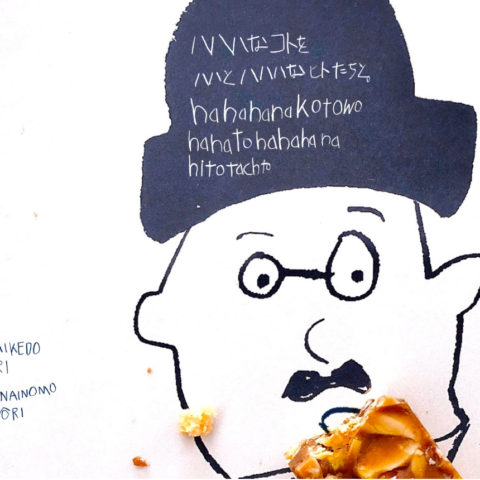 ハハハなコトを
ハハとハハハなヒトたちと。
hahahanakotowo
hahatohahahana
hitotachto
AIKEDO
RI
NAINOMO
ORI